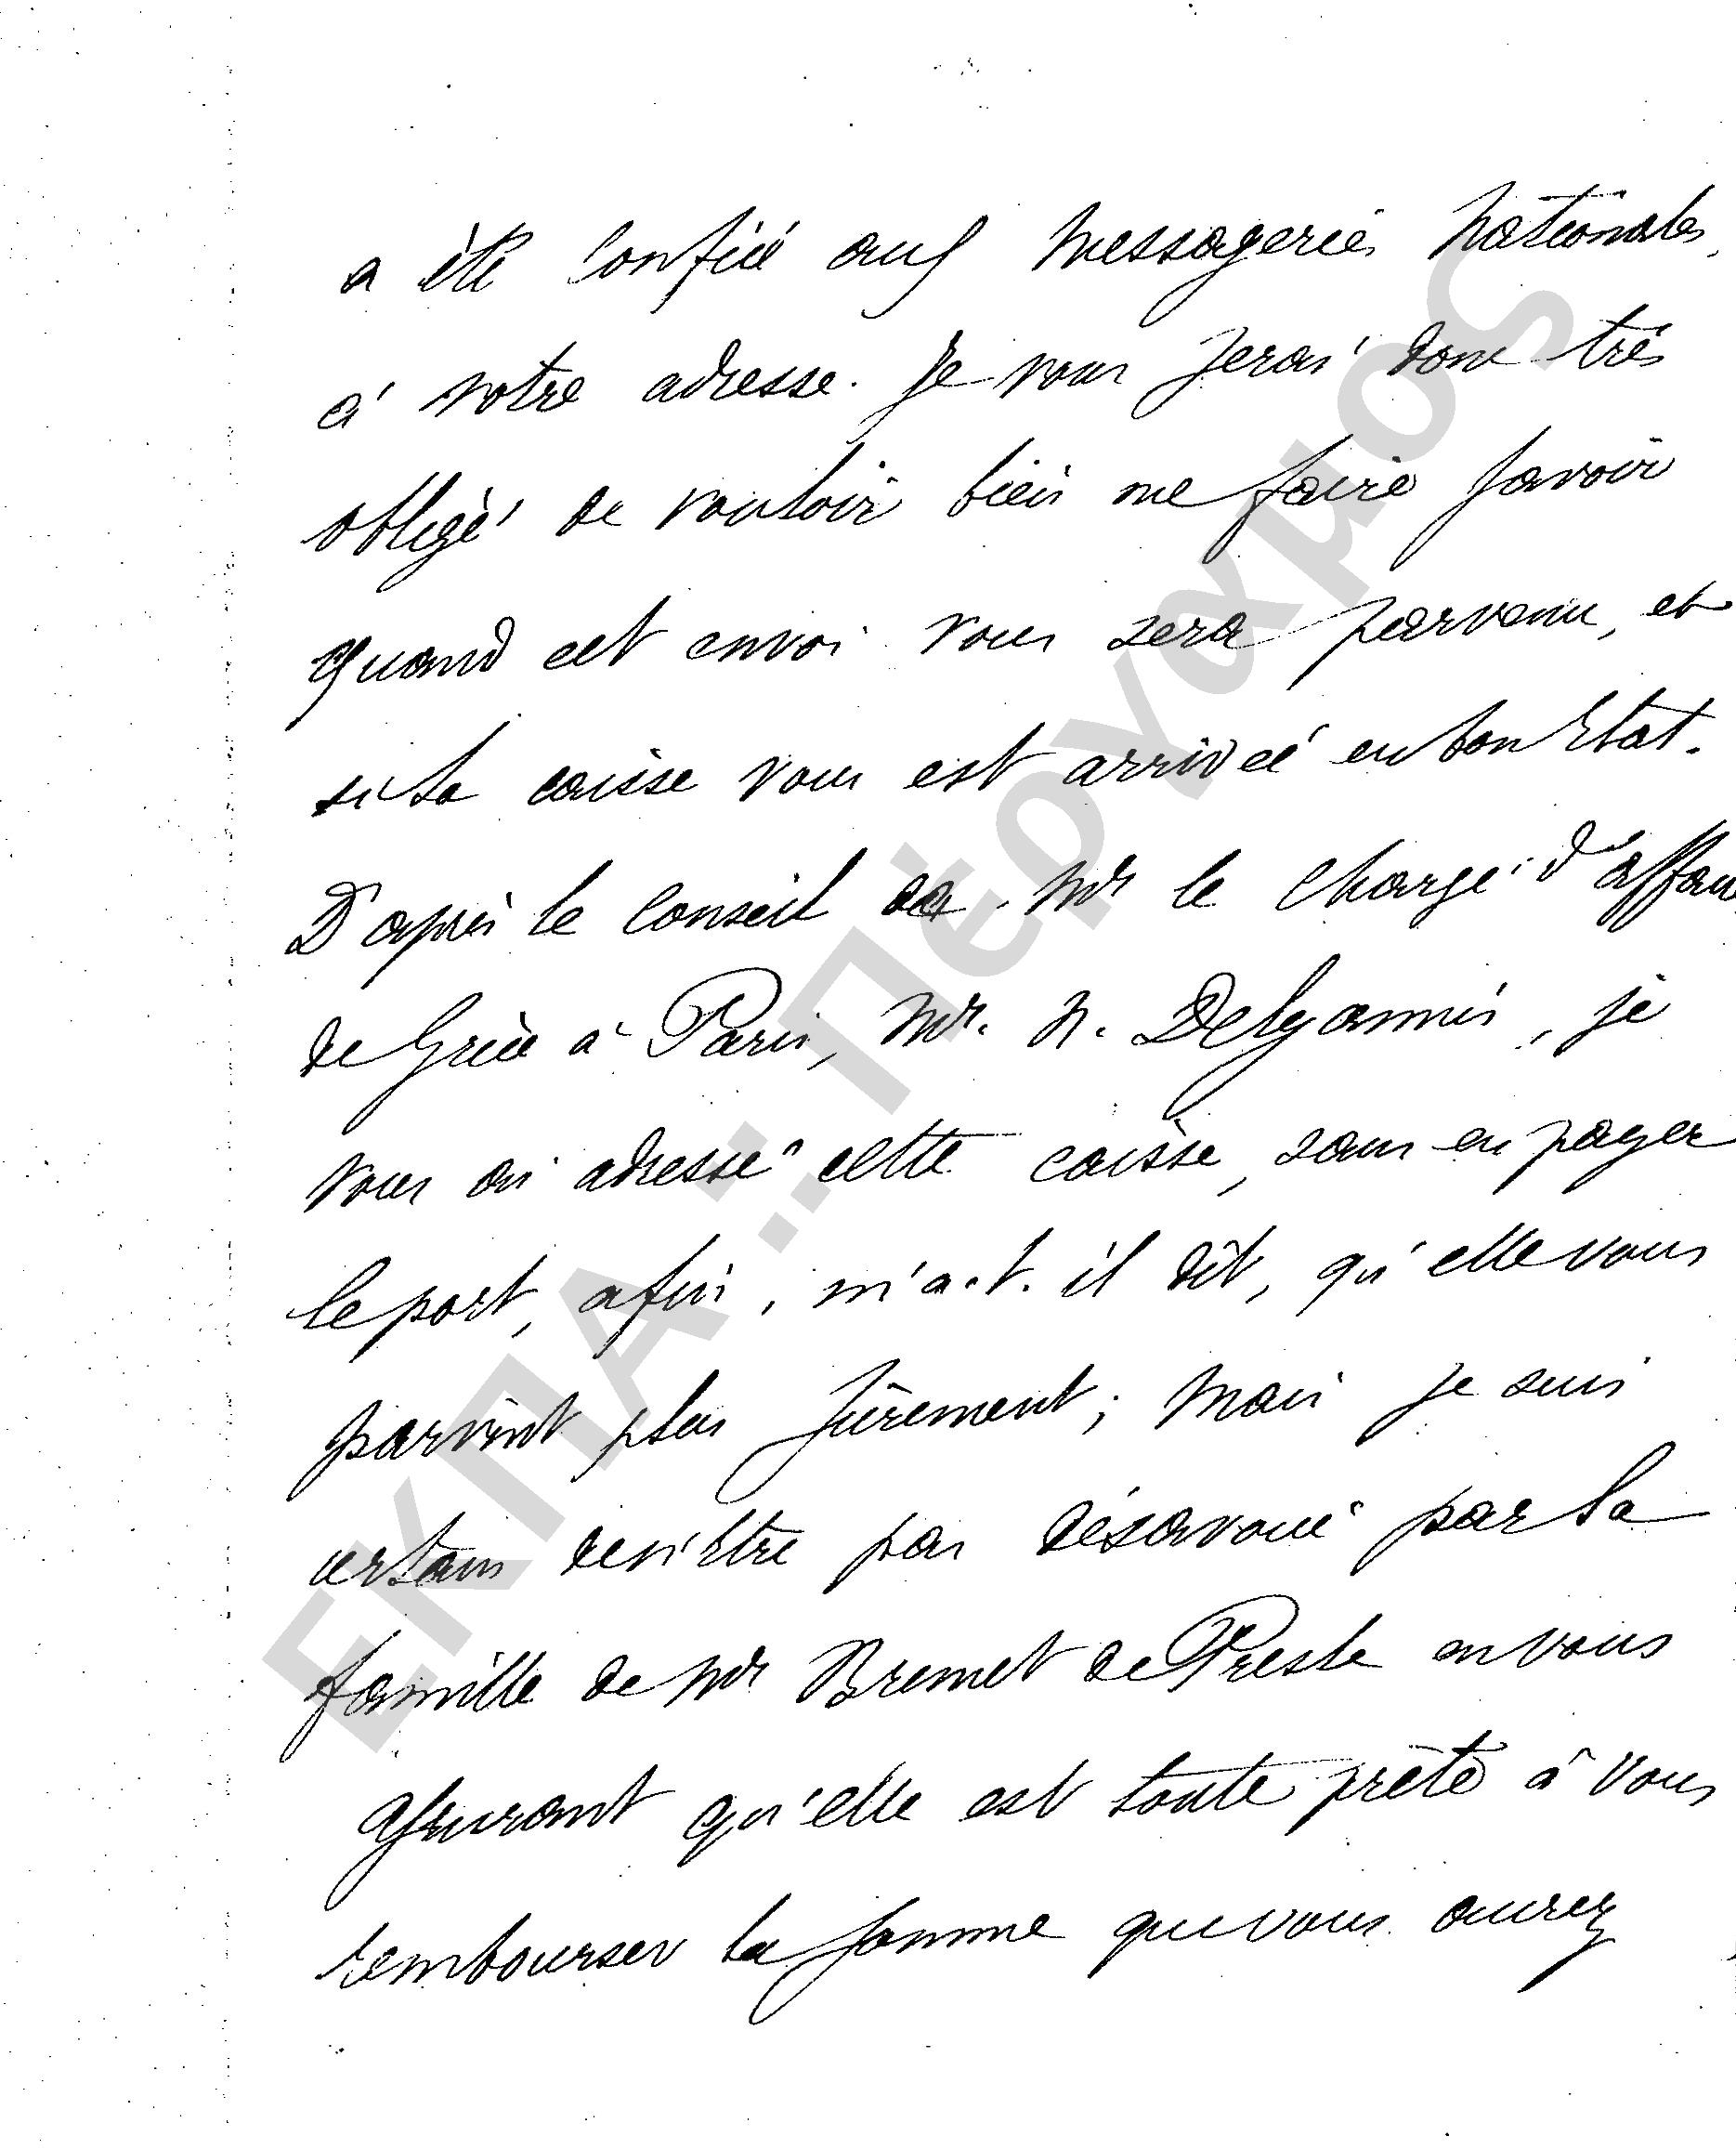 a été confié aux Messageries Nationales,
à votre adresse. Je vous serai donc très
obligé de vouloir bien me faire savoir
quand cet envoi vous sera parvenu, et
si la caisse vous est arrivée en bon état.
D'après le conseil de Mr le chargé d'affaires
de Grèce à Paris, Mr. N. Delyannis, je
vous ai adressé cette caisse, sans en payer
le port, afin, m'a-t-il dit, qu'elle vous
parvint plus sûrement; mais je suis
certain de n'être pas désavoué par la
famille de Mr Brunet de Presle en vous
assurant qu'elle est toute prête à vous
rembourser la somme que vous aurez
ΕΚΠΑ:: Πέργαμος